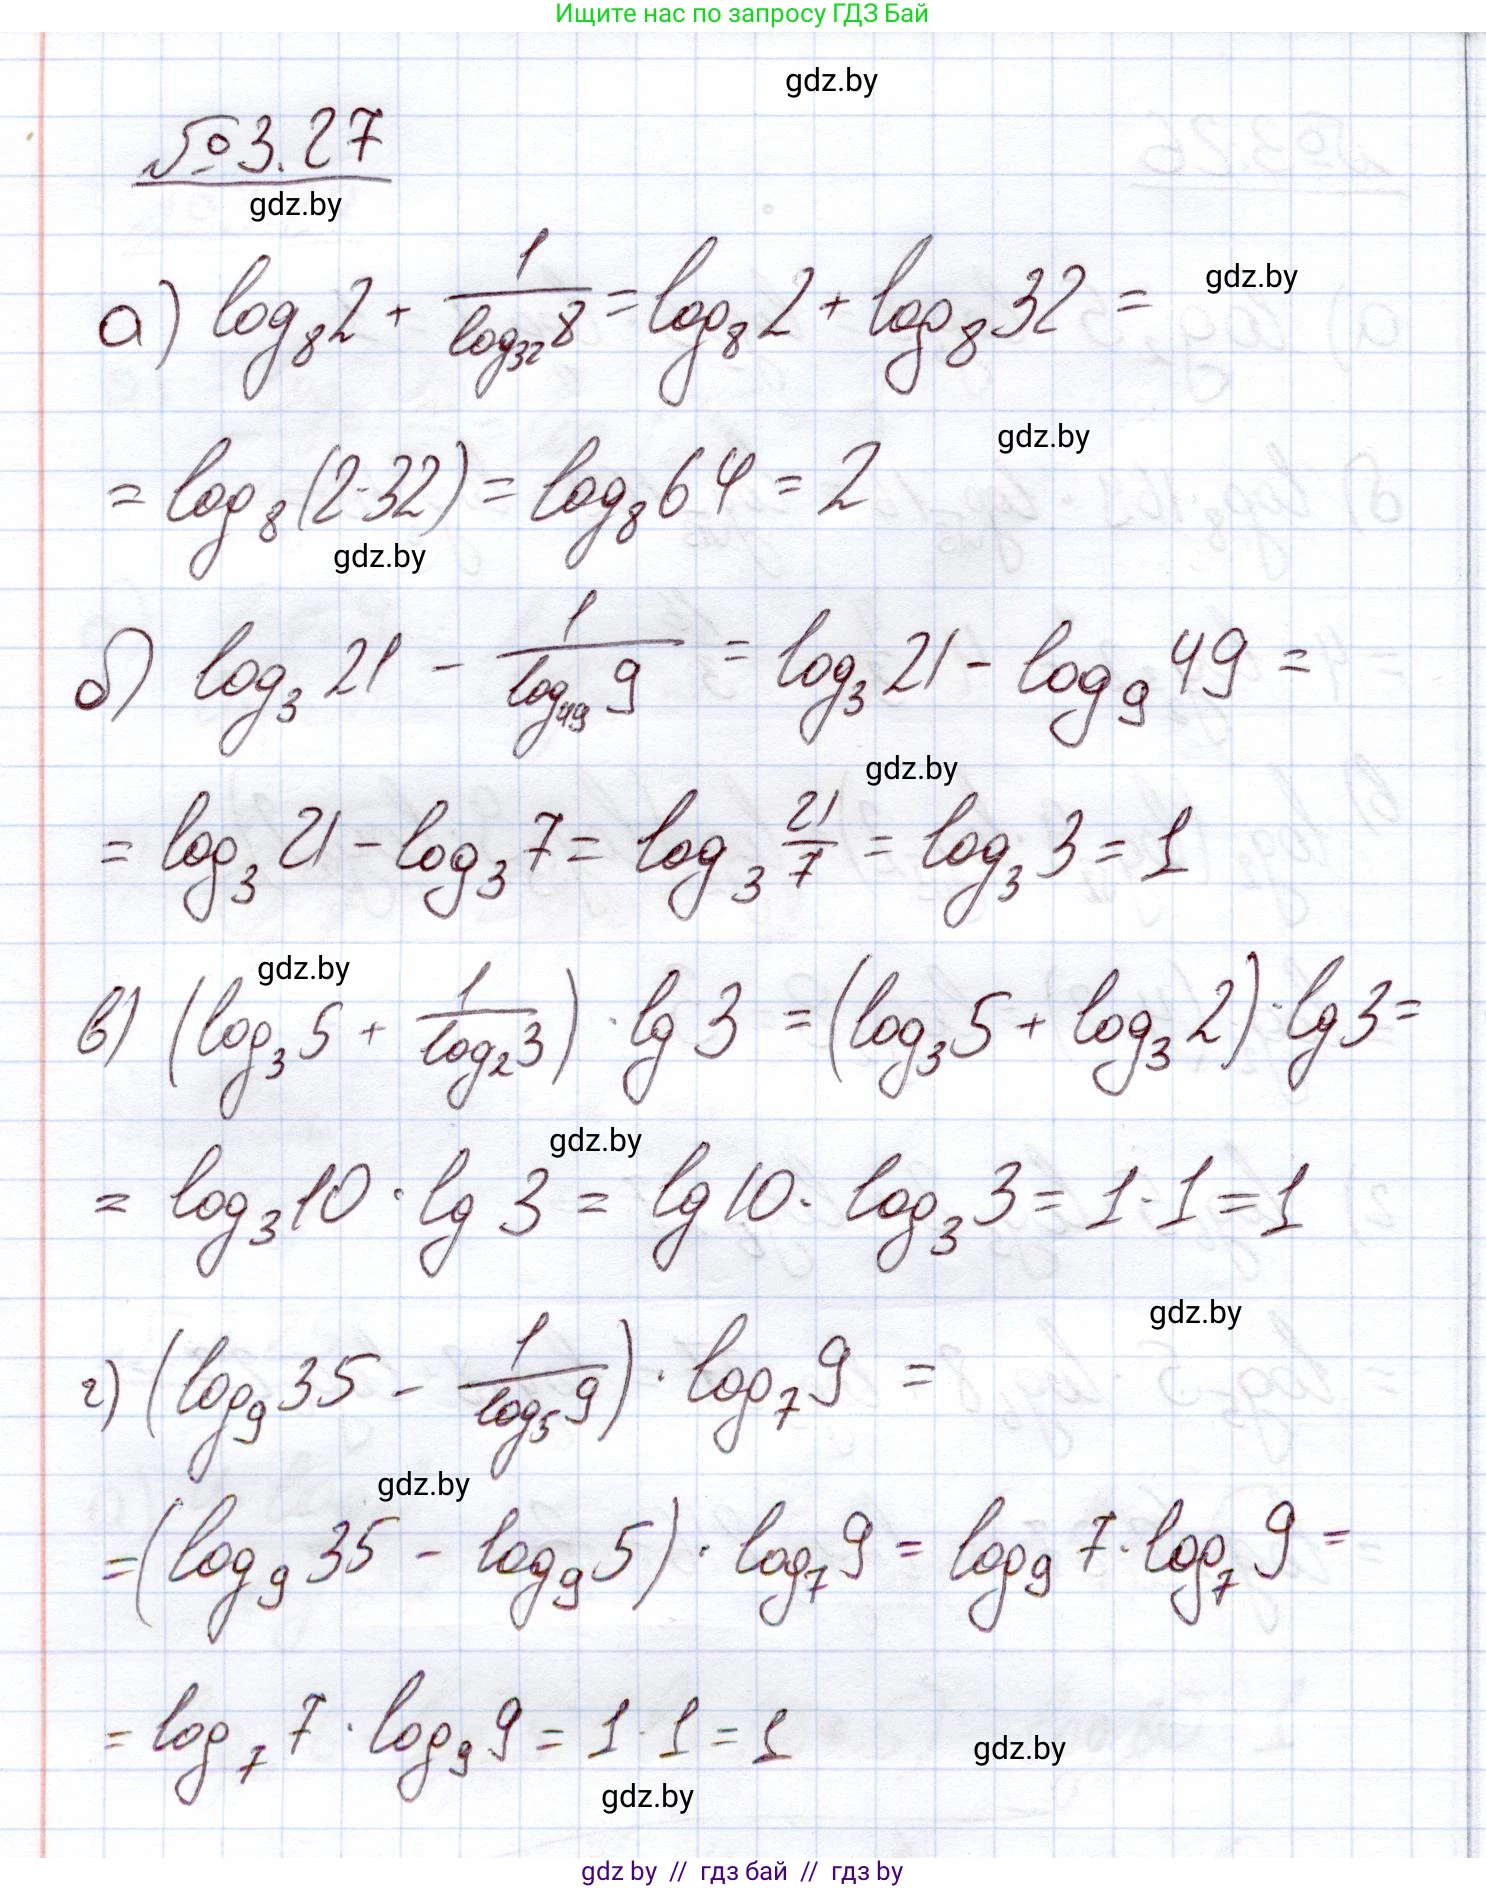 Ищите нас по запросу ГДЗ Бай
gdz.by
№3.27
gdz.by
а) log₈2 + 1/(log₃₂8) = log₈2 + log₈32 =
gdz.by
gdz.by
= log₈(2·32) = log₈64 = 2
gdz.by
б) log₃21 - 1/(log₄₉9) = log₃21 - log₉49 =
gdz.by
= log₃21 - log₃7 = log₃ 21/7 = log₃3 = 1
gdz.by
в) (log₃5 + 1/(log₂3)) · lg3 = (log₃5 + log₃2) · lg3 =
gdz.by
= log₃10 · lg3 = lg10 · log₃3 = 1·1 = 1
gdz.by
г) (log₉35 - 1/(log₅9)) · log₇9 =
gdz.by
= (log₉35 - log₉5) · log₇9 = log₉7 · log₇9 =
= log₇7 · log₉9 = 1·1 = 1
gdz.by
gdz.by
gdz by // гдз бай // гдз by